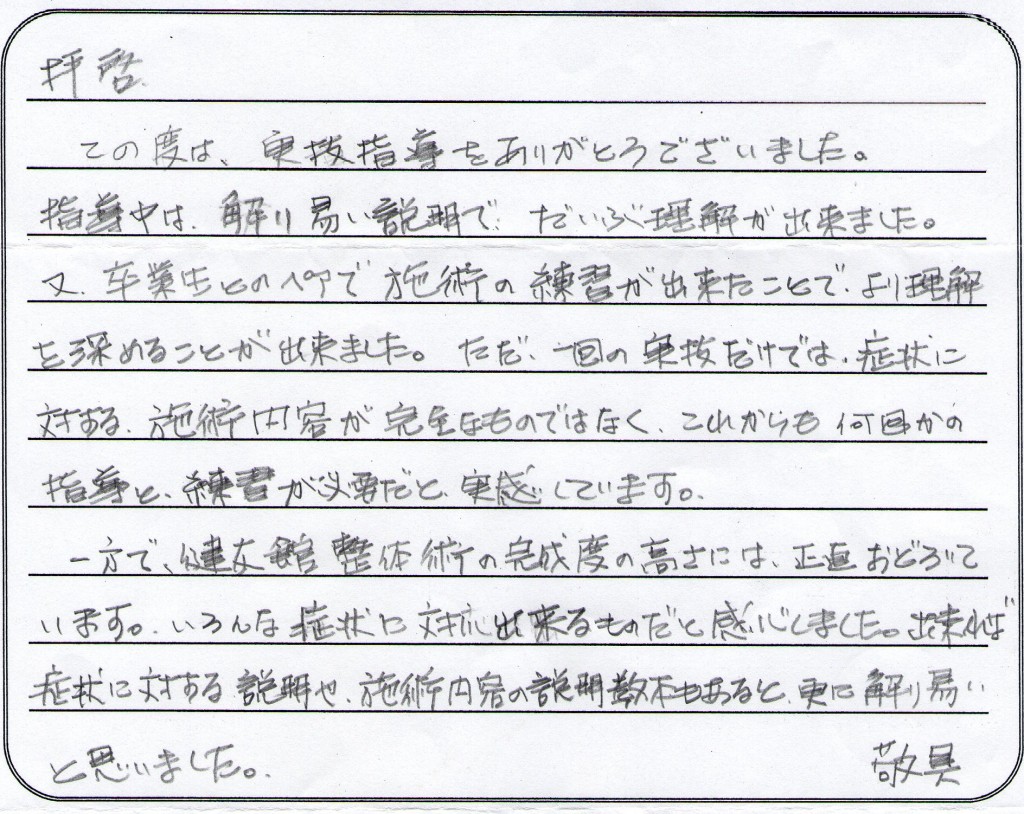 拝啓.
この度は、実技指導をありがとうございました。
指導中は、解り易い説明で、だいぶ理解が出来ました。
又、卒業生とのペアで施術の練習が出来たことで、より理解
を深めることが出来ました。ただ、一回の実技だけでは、症状に
対する、施術内容が完全なものではなく、これからも何回かの
指導と、練習が必要だと、実感しています。
一方で、健友館整体術の完成度の高さには、正直おどろいて
います。いろんな症状に対応出来るものだと感心しました。出来れば
症状に対する説明や、施術内容の説明教本もあると、更に解り易い
と思いました。 敬具